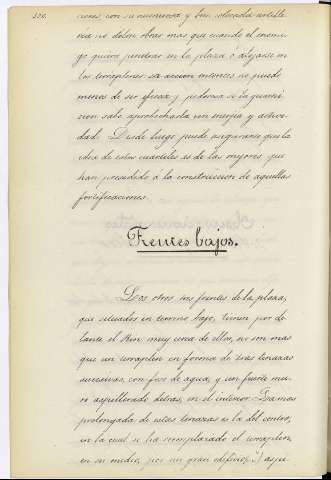 ciones con su numerosa y bien colocada artille-
ria no deben obrar mas que cuando el enemi-
go quiera penetrar en la plaza ó alojarse en
los terraplenes su accion entonces no puede
menos de ser eficaz y poderosa si la guarni-
cion sabe aprovecharla con energia y activi-
dad. Desde luego puede asegurarse que la
idea de estos cuarteles es de las mejores que
han precedido á la construccion de aquellas
fortificaciones.
Frentes bajos.
Los otros tres frentes de la plaza,
que situados en terreno bajo, tienen por de-
lante el Rin muy cerca de ellos, no son mas
que un terraplen en forma de tres tenazas
sucesivas, con foso de agua, y un fuerte mu-
ro aspillerado detras, en el interior. La mas
prolongada de estas tenazas es la del centro,
en la cual se ha reemplazado el terraplen,
en su medio, por un gran edificio,